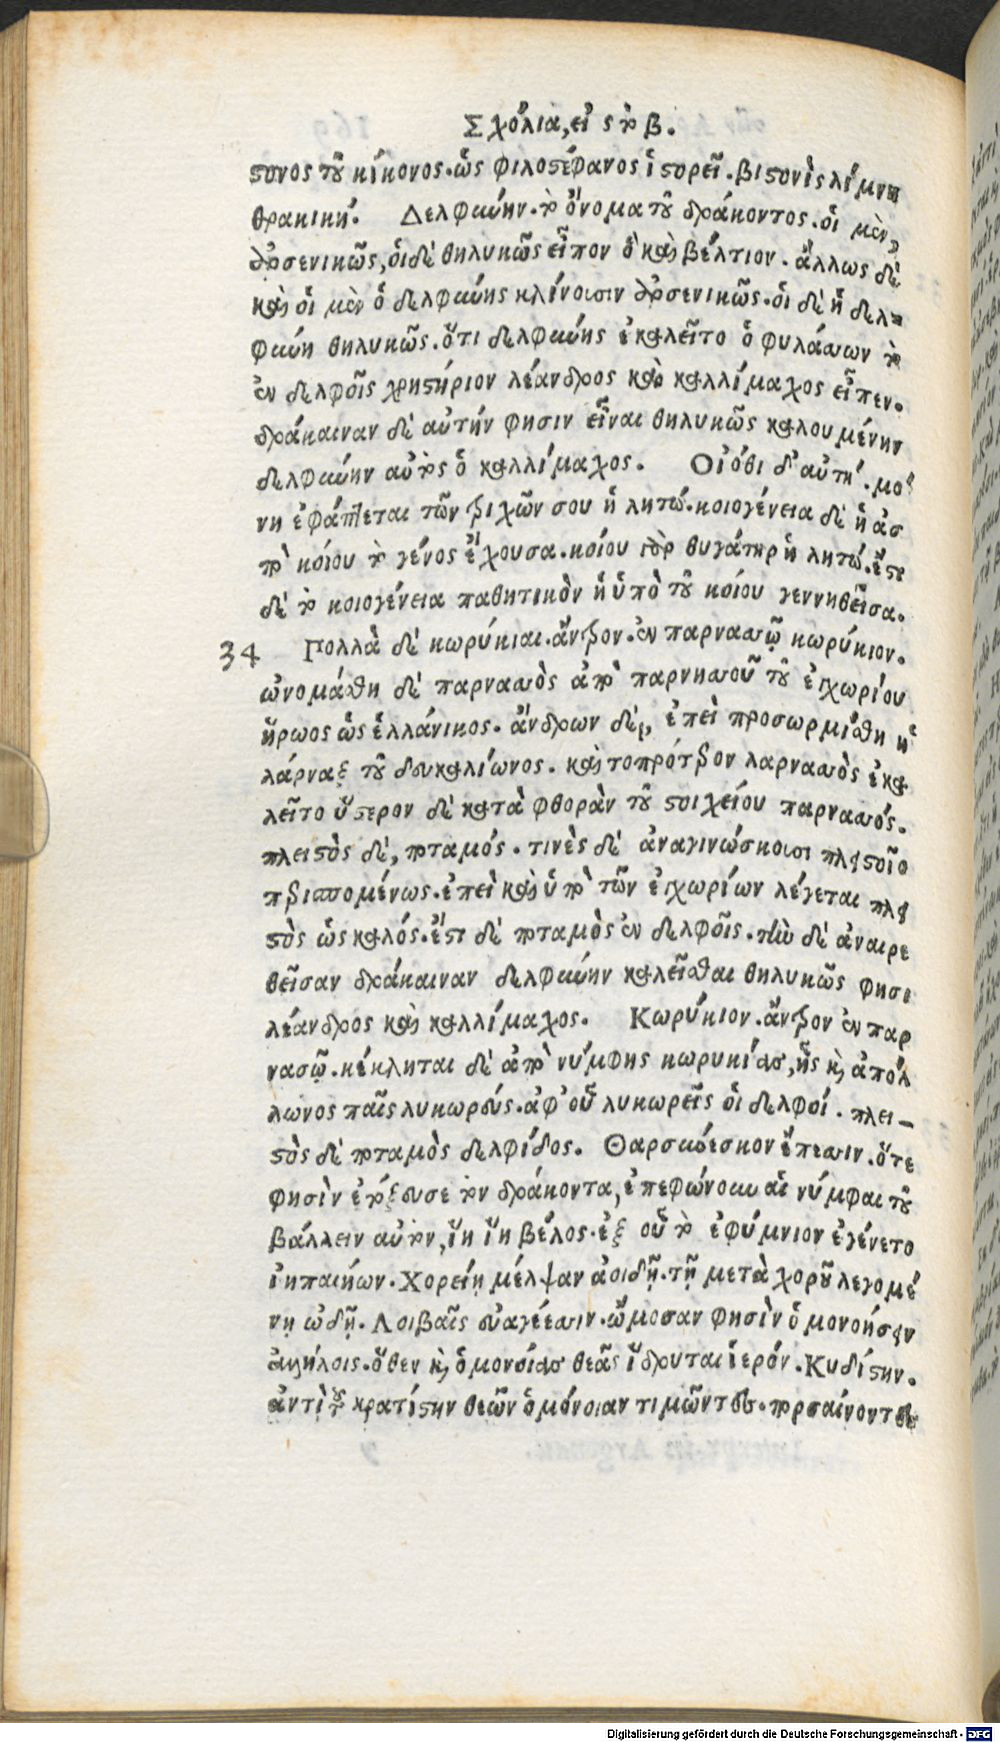 Σχόλια, εἰς τὸ β.
στονος τοῦ κίκονος. ὡς φιλοστέφανος ἱστορεῖ. βιστονὶς λίμνη
θρακική. Δελφαύην. τὸ ὄνομα τοῦ δράκοντος. οἱ μὲν,
ἀρσενικῶς, οἱ δὲ θηλυκῶς εἶπον ὃ καὶ βέλτιον. ἄλλως δὲ
καὶ οἱ μὲν ὁ δελφαύης κλίνουσιν ἀρσενικῶς. οἱ δὲ ἡ δελ=
φαύη θηλυκῶς. ὅτι δελφαύης ἐκαλεῖτο ὁ φυλάσσων τὸ
ἐν δελφοῖς χρηστήριον λέανδρος καὶ καλλίμαχος εἶπεν.
δράκαιναν δὲ αὐτήν φησιν εἶναι θηλυκῶς καλουμένην
δελφαύην αὐτὸς ὁ καλλίμαχος. Οἰόθι δ' αὐτή. μο
νη ἐφάπτεται τῶν τριχῶν σου ἡ λητώ. κοιογένεια δὲ ἡ ἀ
πὸ κοίου τὸ γένος ἔχουσα. κοίου γὰρ θυγάτηρ ἡ λητώ. ἔστι
δὲ τὸ κοιογένεια παθητικὸν ἡ ὑπὸ τοῦ κοίου γεννηθεῖσα.
34 Πολλὰ δὲ κωρύκιαι. ἄντρον. ἐν παρνασσῷ κωρύκιον.
ὠνομάσθη δὲ παρνασσὸς ἀπὸ παρνησσοῦ τοῦ ἐγχωρίου
ἥρωος ὡς ἑλλάνικος. ἄνδρων δέ, ἐπεὶ προσωρμίσθη ἡ
λάρναξ τοῦ δευκαλίωνος. καὶ τοπρότερον λαρνασσὸς ἐκα
λεῖτο ὕστερον δὲ κατὰ φθορὰν τοῦ στοιχείου παρνασσός.
πλειστὸς δέ, ποταμός. τινὲς δὲ ἀναγινώσκουσι πλαστοῖο
περισπομένως. ἐπεὶ καὶ ὑπὸ τῶν ἐγχωρίων λέγεται πλα
στὸς ὡς καλός. ἔστι δὲ ποταμὸς ἐν δελφοῖς. τὴν δὲ ἀναιρε
θεῖσαν δράκαιναν δελφαύην καλεῖσθαι θηλυκῶς φησι
λέανδρος καὶ καλλίμαχος. Κωρύκιον. ἄντρον ἐν παρ
νασῷ. κέκληται δὲ ἀπὸ νύμφης κωρυκίας, ἧς καὶ ἀπόλ
λωνος παῖς λυκωρεύς. ἀφ' οὗ λυκωρεῖς οἱ δελφοί. πλει-
στὸς δὲ ποταμὸς δελφίδος. Θαρσύεσκον ἔπεσσιν. ὅτε
φησὶν ἐτόξευσε τὸν δράκοντα, ἐπεφώνουν αἱ νύμφαι τοῦ
βάλλειν αὐτὸν, ἵη ἵη βέλος. ἐξ οὗ τὸ ἐφύμνιον ἐγένετο
ἰηπαιήων. Χορείῃ μέλψαν ἀοιδῇ. τῇ μετὰ χοροῦ λεγομέ
νῃ ᾠδῇ. Λοιβαῖς εὐαγέεσσιν. ὤμοσαν φησὶν ὁμονοήσειν
ἀλλήλοις. ὅθεν καὶ ὁμονοίας θεᾶς ἵδρυται ἱερόν. Κυδίστην.
ἀντὶ τοῦ κρατίστην θεῶν ὁμόνοιαν τιμῶντες. ποτσαίνοντες
Digitalisierung gefördert durch die Deutsche Forschungsgemeinschaft - DFG